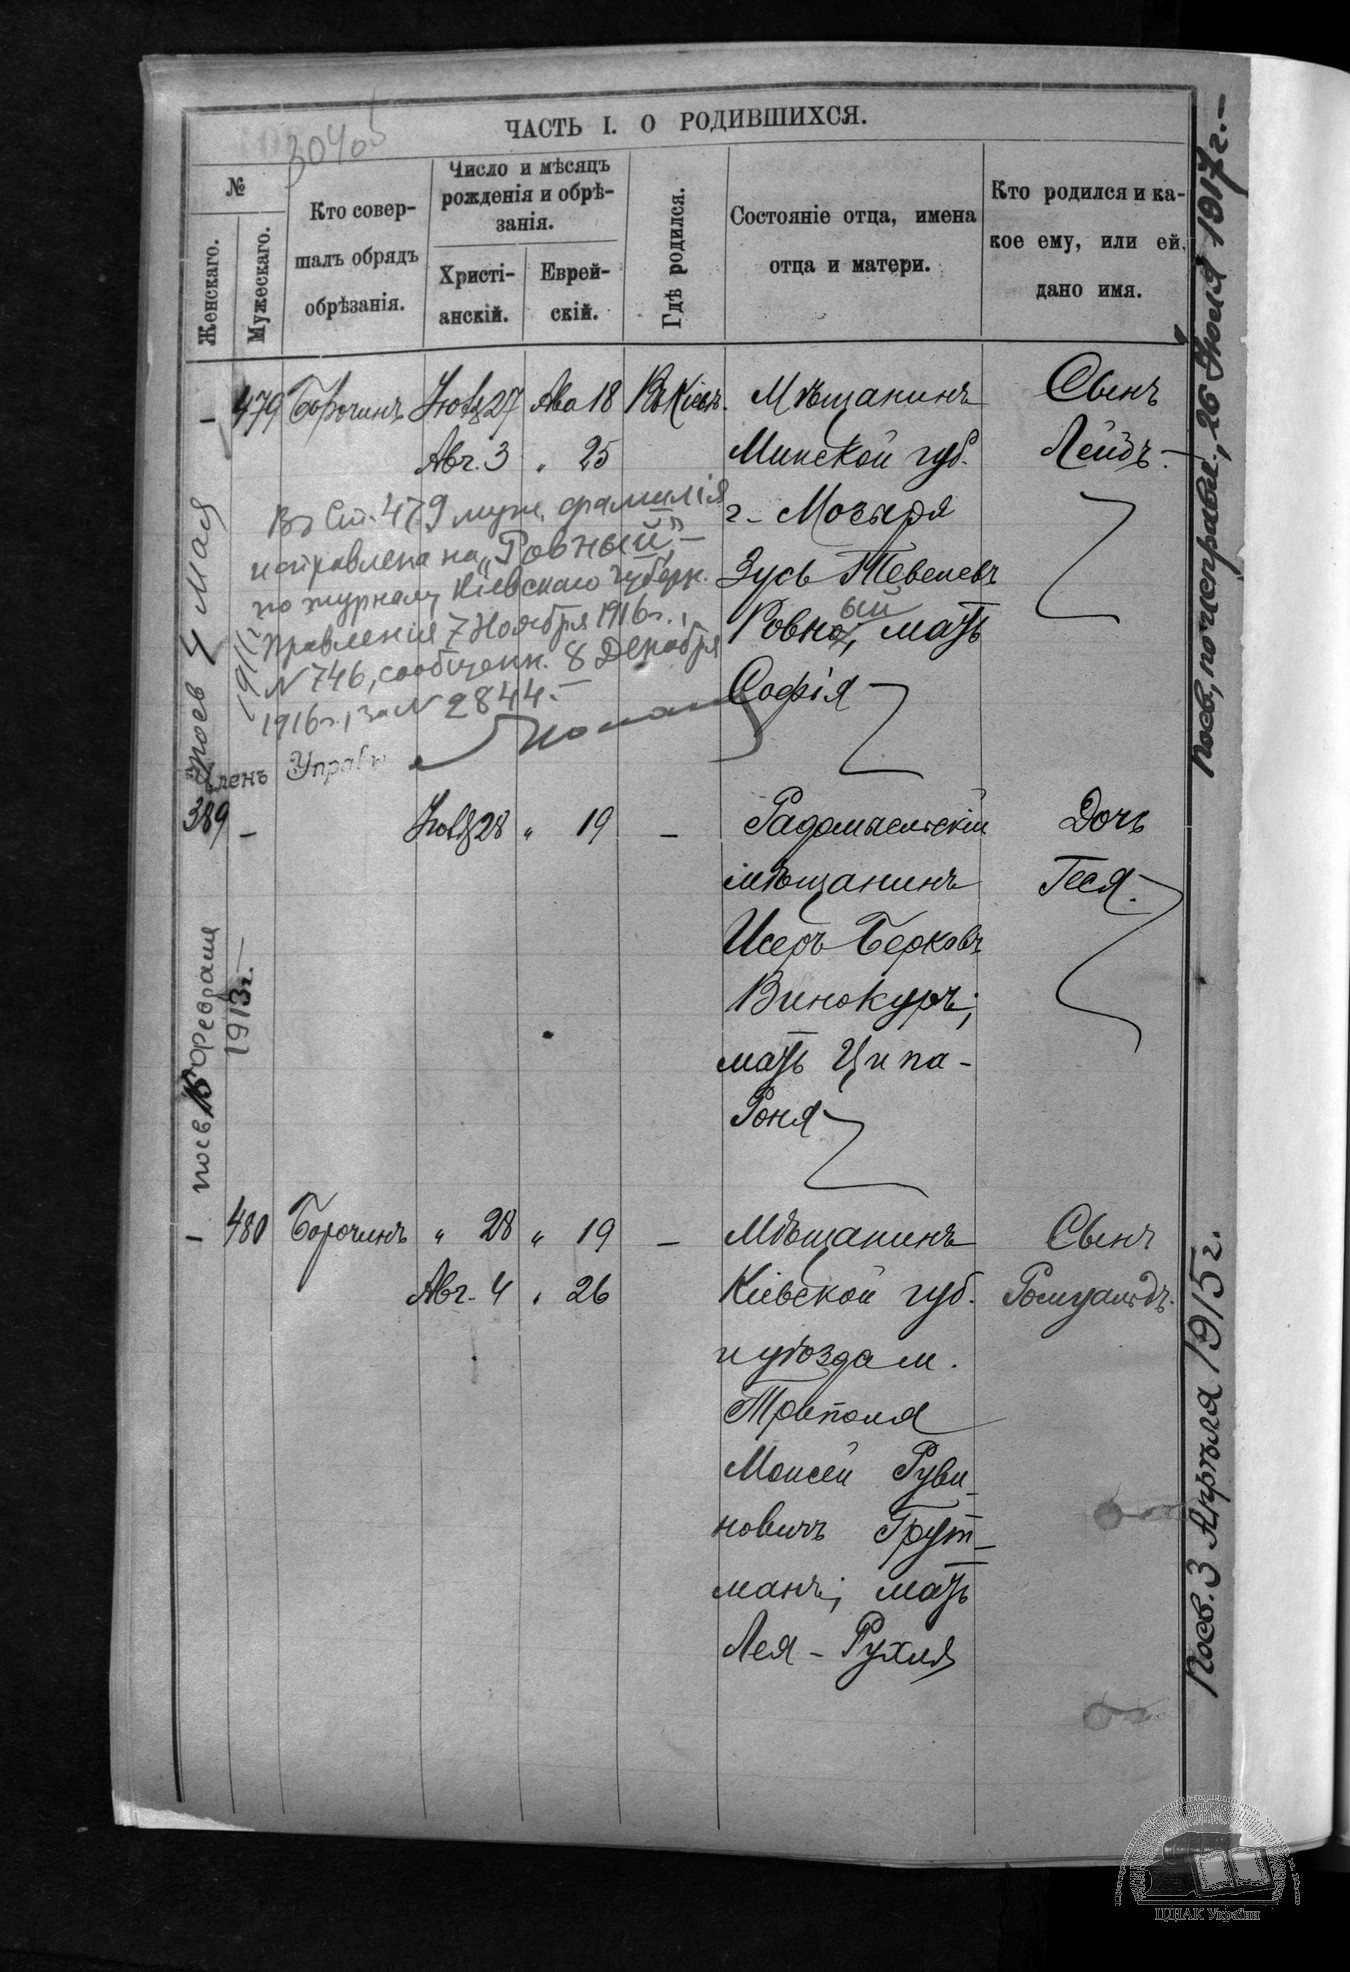 ЧАСТЬ I. О РОДИВШИХСЯ.
№
Женскаго.
Мужескаго.
Кто совер-
шалъ обрядъ
обрѣзанія.
Число и мѣсяцъ
рожденія и обрѣ-
занія.
Христі-
анскій.
Еврей-
скій.
Гдѣ родился.
Состояніе отца, имена
отца и матери.
Кто родился и ка-
кое ему, или ей.
дано имя.
479 Борочинъ Іюля 27 Ава 18 Въ Кіевѣ. Мѣщанинъ Сынъ
Авг. 3 " 25 Минской губ. Лейбъ.
г. Мозыря
Зусь Тевелевъ
ый
Ровно, мать
Софія
Въ Ст. 479 муж. фамилія
исправлена на „Ровный" —
по журналу Кіевскаго Губерн.
Правленія 7 Ноября 1916 г.,
N 746, сообщенн. 8 Декабря
1916 г., за N 2844. —
Членъ Управы
4 Мая
1911
389 — Іюля 28 " 19 — Радомысльскій Дочь
мѣщанинъ Геся.
Исеръ Берковъ
Винокуръ;
мать Ципа-
Роня
посв. 15 Февраля
1913 г. —
— 480 Борочинъ " 28 " 19 — Мѣщанинъ Сынъ
Авг. 4 " 26 Кіевской губ. Ромуальдъ.
и уѣзда м.
Триполя
Моисей Руви-
новичъ Грут-
манъ; мать
Лея - Рухля
26 Іюля 1917 г. —
3 Апрѣля 1915 г.
ЦДІАК України